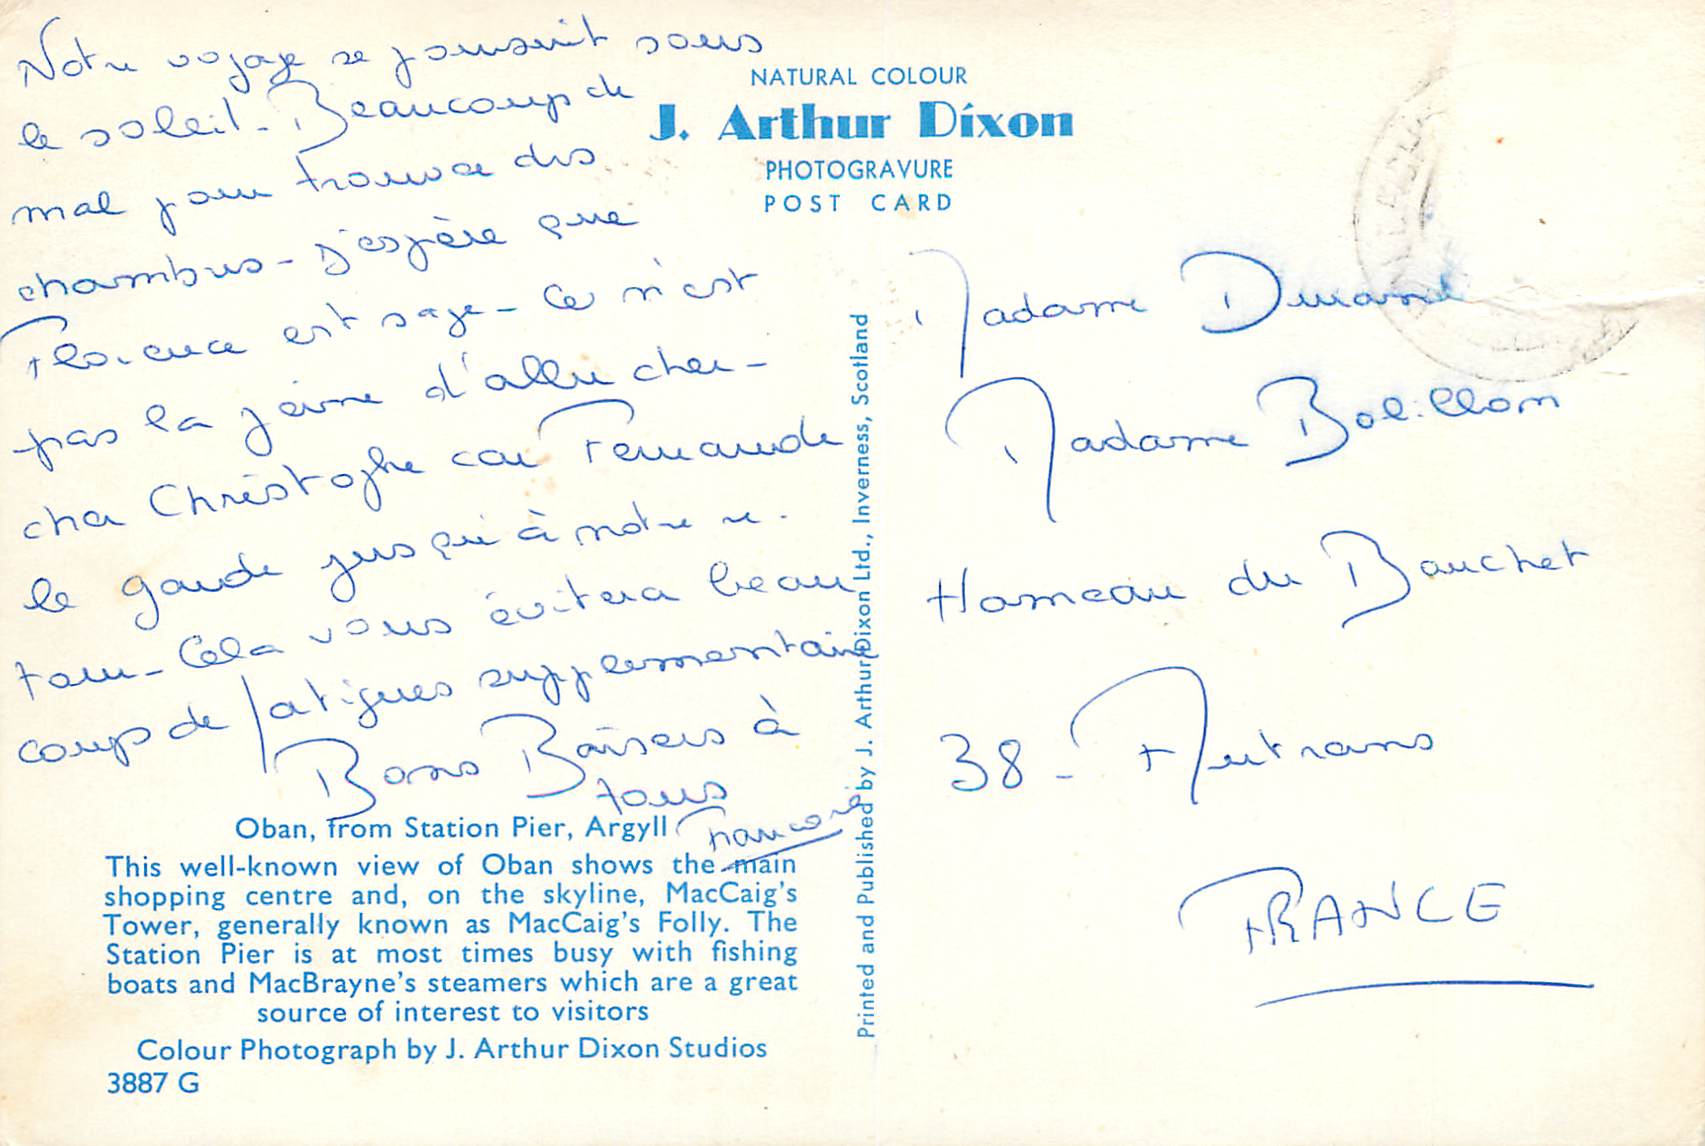 Notre voyage se poursuit sous
le soleil - Beaucoup de
mal pour trouver des
chambres - J'espère que
Florence est sage - Ce n'est
pas la peine d'aller cher-
cher Christophe car Fernande
le garde jusqu'à notre re-
tour - Cela vous évitera beau
coup de fatigues supplementaire
Bons Baisers à
tous
NATURAL COLOUR
J. Arthur Dixon
PHOTOGRAVURE
POST CARD
Oban, from Station Pier, Argyll
This well-known view of Oban shows the main
shopping centre and, on the skyline, MacCaig's
Tower, generally known as MacCaig's Folly. The
Station Pier is at most times busy with fishing
boats and MacBrayne's steamers which are a great
source of interest to visitors
Colour Photograph by J. Arthur Dixon Studios
3887 G
Printed and Published by J. Arthur Dixon Ltd., Inverness, Scotland
Madame Durand
Madame Bolillon
Hameau du Bauchet
38 - Autrans
FRANCE